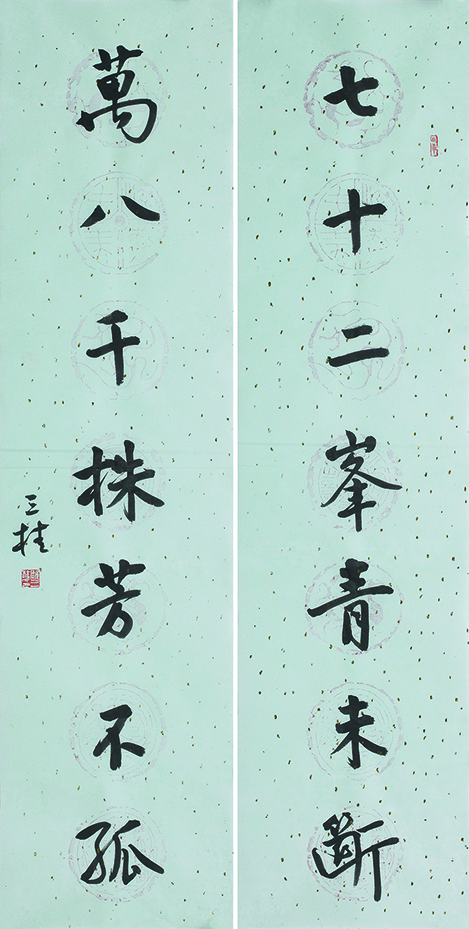 七十二峯青未斷
萬八千株芳不孤
三桂